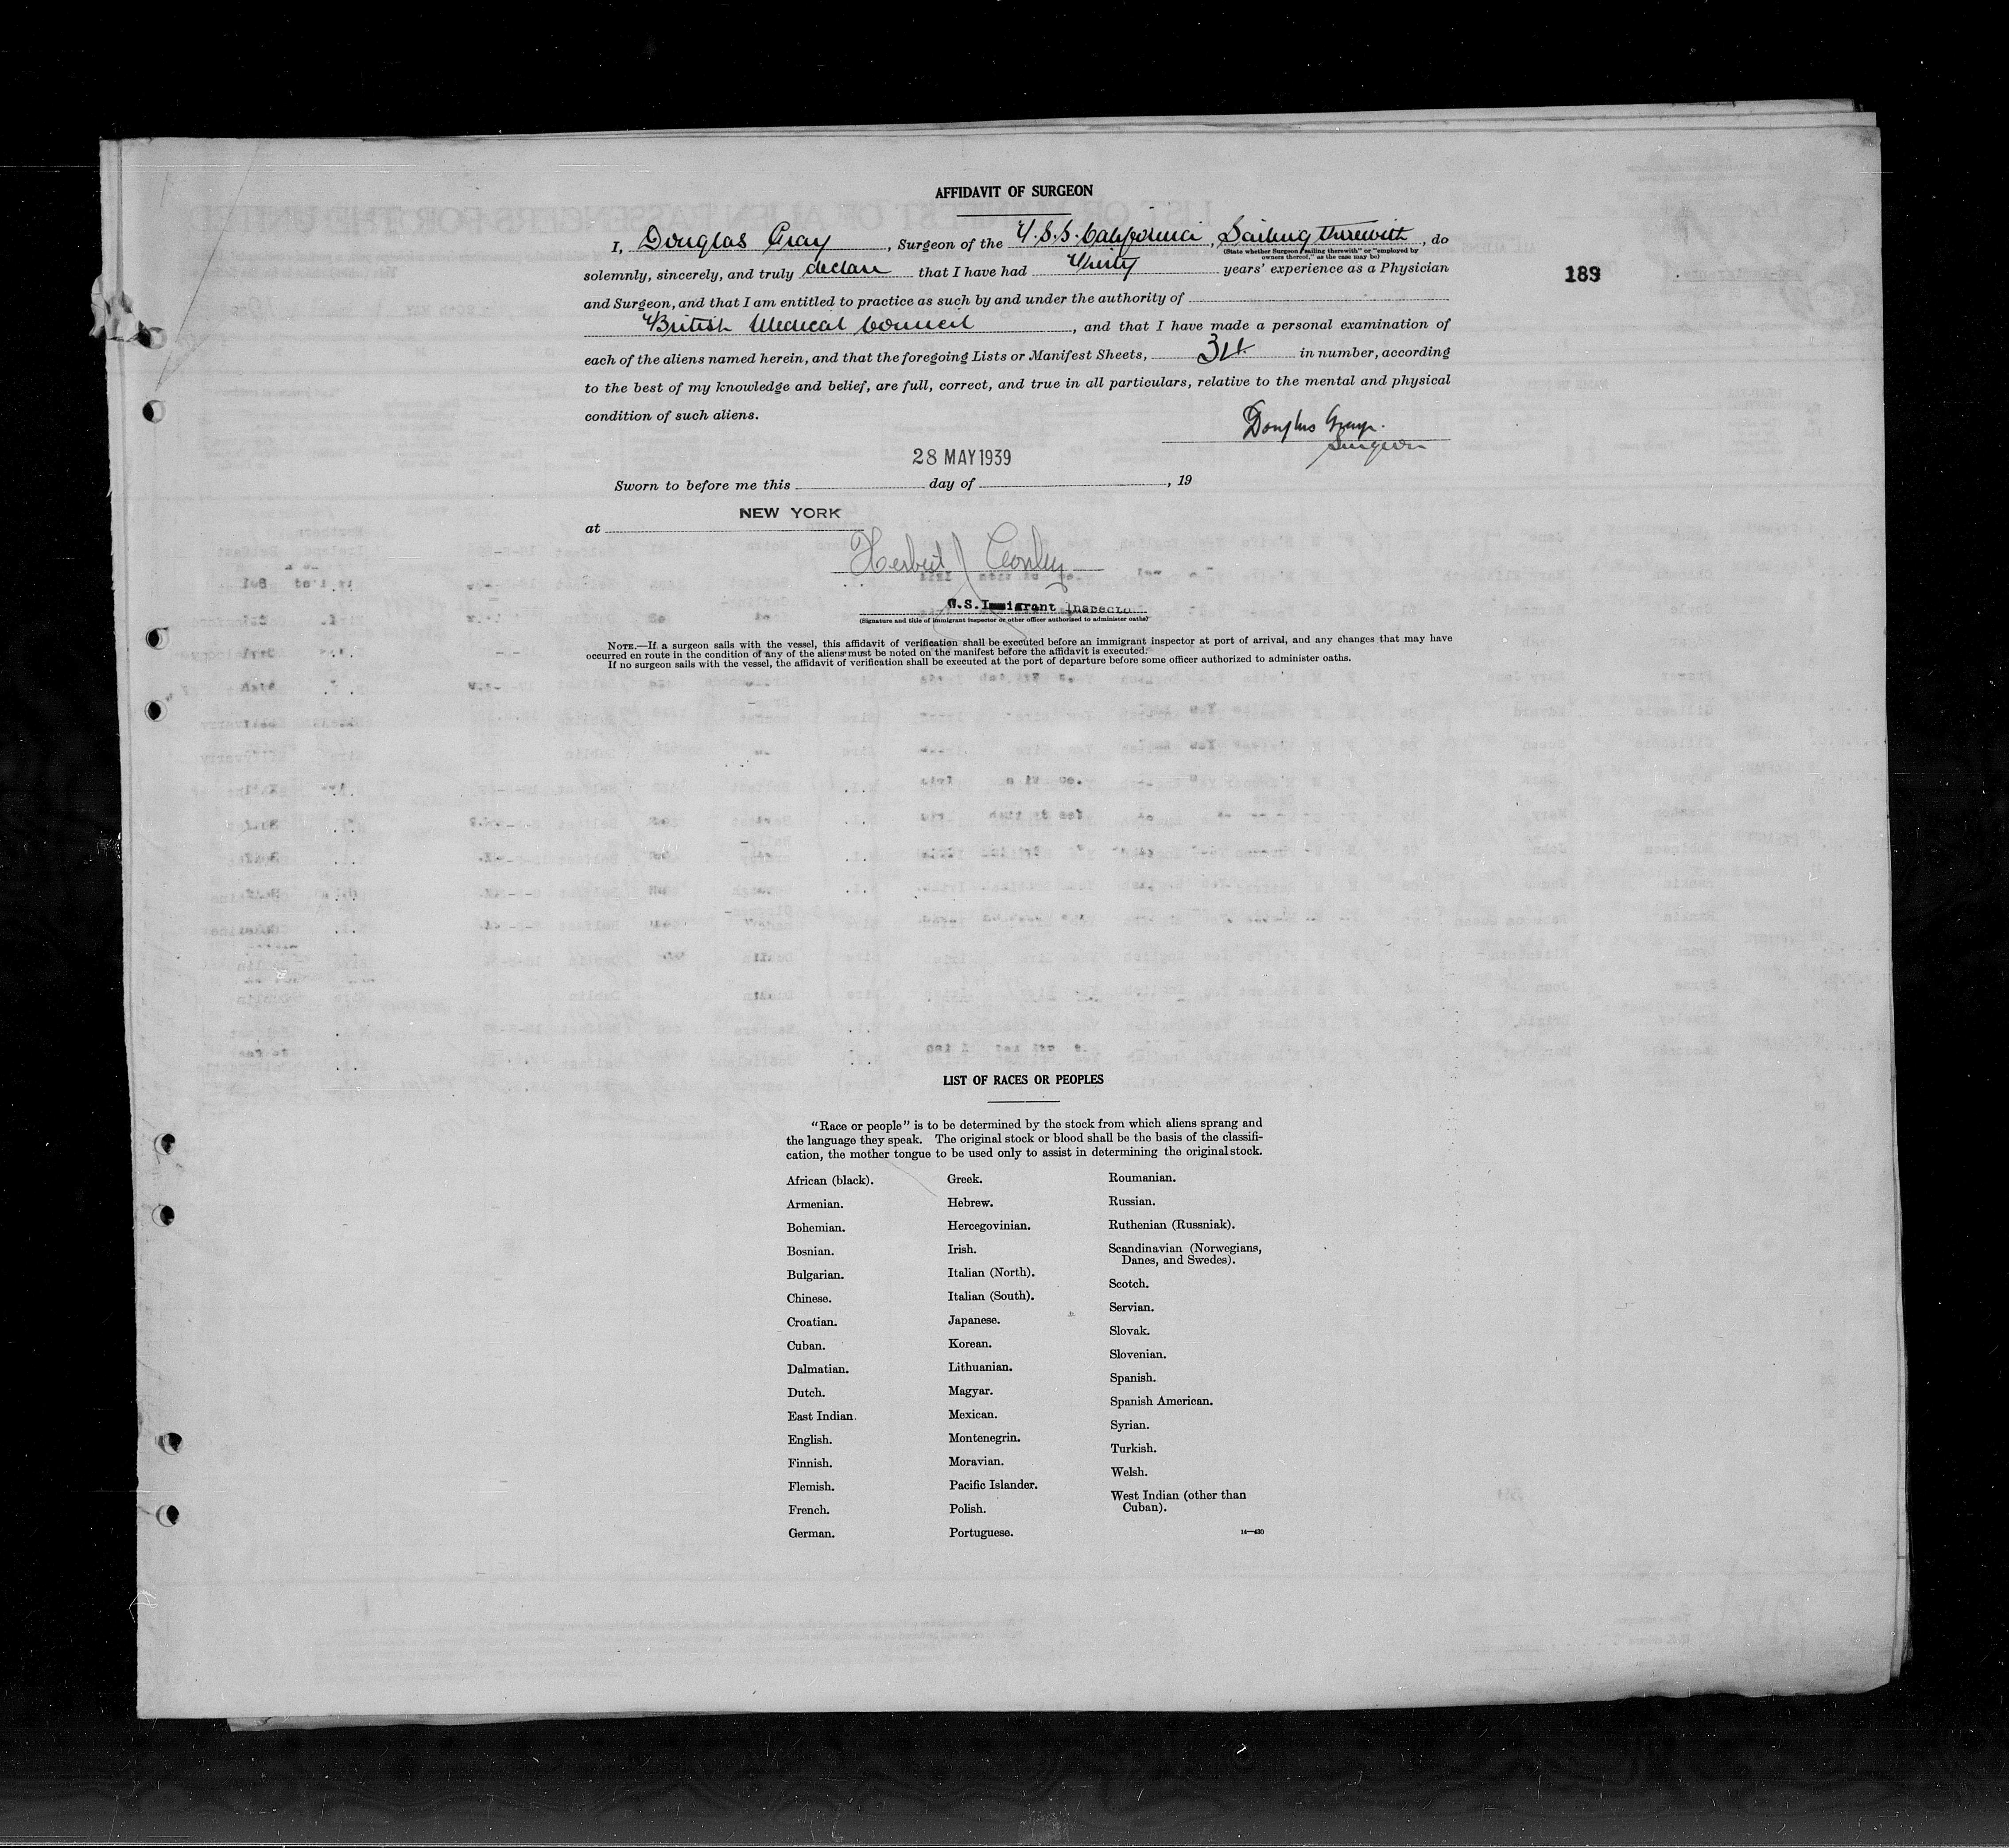 AFFIDAVIT OF SURGEON
I, Douglas Gray, Surgeon of the T.S.S. California, Sailing therewith, do
(State whether Surgeon "sailing therewith" or "employed by
owners thereof," as the case may be)
solemnly, sincerely, and truly declare that I have had Thirty years' experience as a Physician
189
and Surgeon, and that I am entitled to practice as such by and under the authority of
British Medical Council, and that I have made a personal examination of
each of the aliens named herein, and that the foregoing Lists or Manifest Sheets, 34 in number, according
to the best of my knowledge and belief, are full, correct, and true in all particulars, relative to the mental and physical
condition of such aliens.
Douglas Gray.
Surgeon
28 MAY 1939
Sworn to before me this day of , 19
NEW YORK
at
Herbert J
U.S. Immigrant Inspector
(Signature and title of immigrant inspector or other officer authorized to administer oaths)
NOTE.—If a surgeon sails with the vessel, this affidavit of verification shall be executed before an immigrant inspector at port of arrival, and any changes that may have
occurred en route in the condition of any of the aliens must be noted on the manifest before the affidavit is executed.
If no surgeon sails with the vessel, the affidavit of verification shall be executed at the port of departure before some officer authorized to administer oaths.
LIST OF RACES OR PEOPLES
"Race or people" is to be determined by the stock from which aliens sprang and
the language they speak. The original stock or blood shall be the basis of the classifi-
cation, the mother tongue to be used only to assist in determining the original stock.
African (black).
Armenian.
Bohemian.
Bosnian.
Bulgarian.
Chinese.
Croatian.
Cuban.
Dalmatian.
Dutch.
East Indian.
English.
Finnish.
Flemish.
French.
German.
Greek.
Hebrew.
Hercegovinian.
Irish.
Italian (North).
Italian (South).
Japanese.
Korean.
Lithuanian.
Magyar.
Mexican.
Montenegrin.
Moravian.
Pacific Islander.
Polish.
Portuguese.
Roumanian.
Russian.
Ruthenian (Russniak).
Scandinavian (Norwegians,
Danes, and Swedes).
Scotch.
Servian.
Slovak.
Slovenian.
Spanish.
Spanish American.
Syrian.
Turkish.
Welsh.
West Indian (other than
Cuban).
14—430